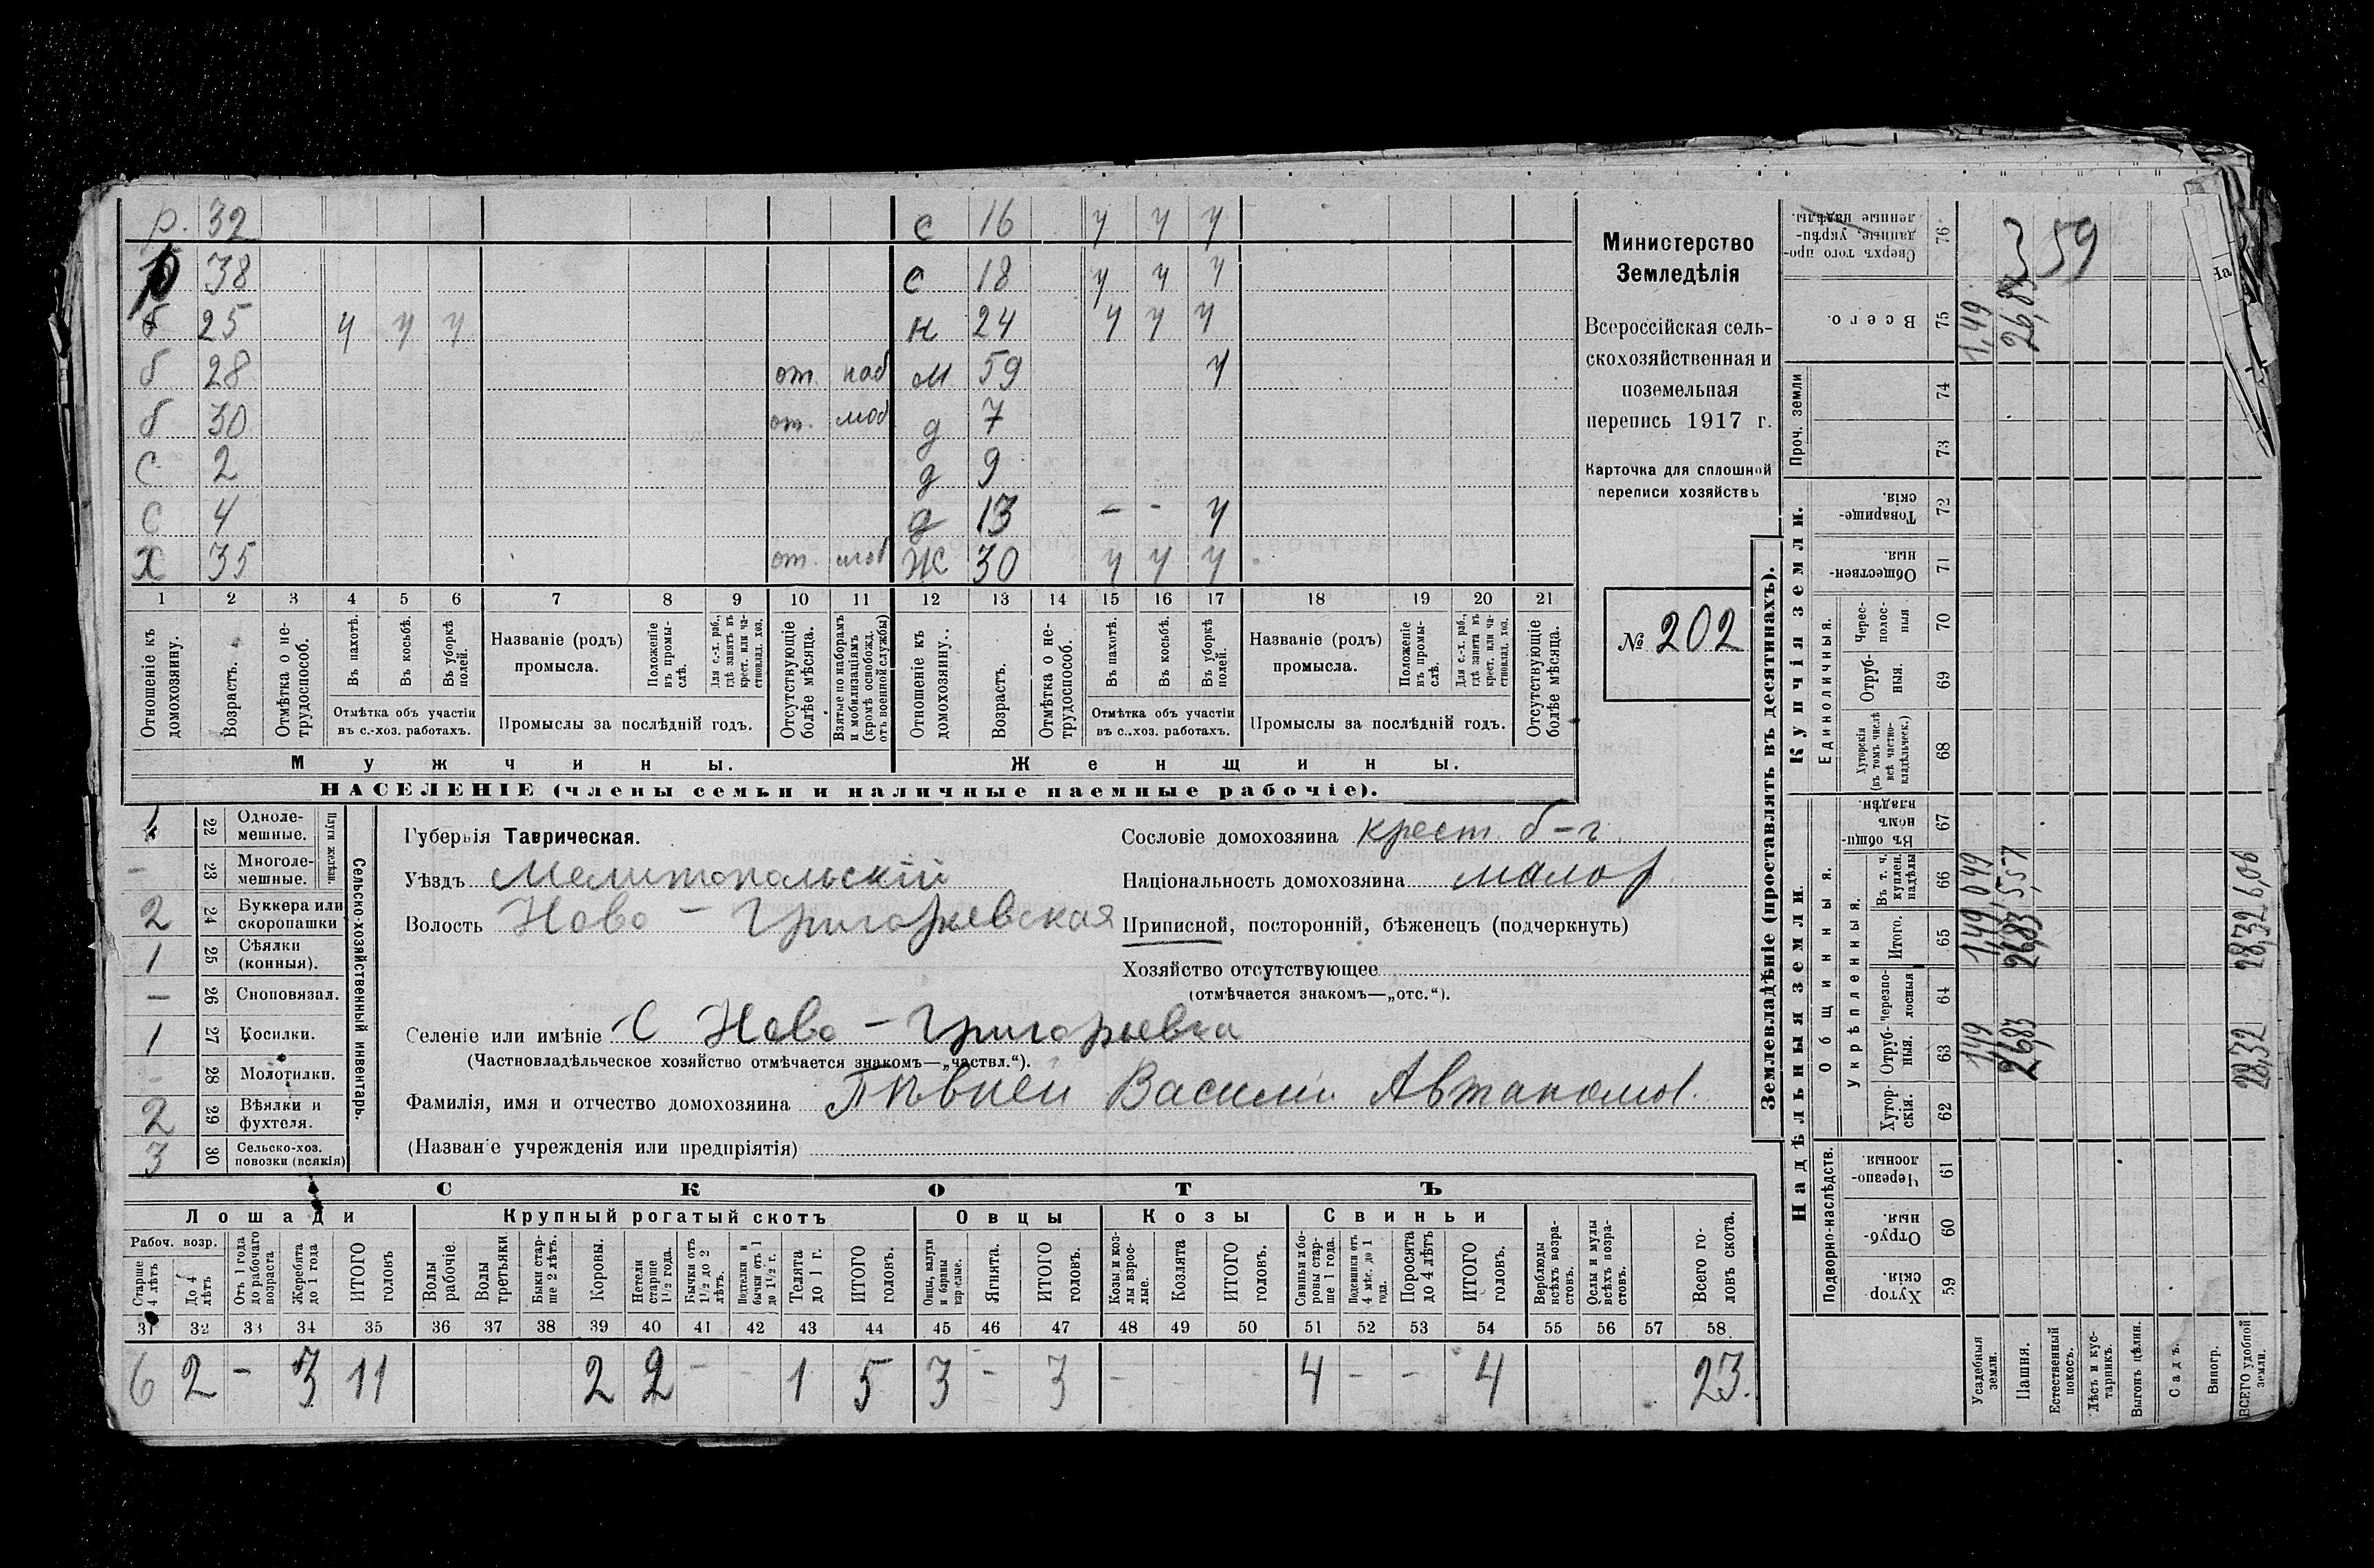 р. 32 с 16 ч ч ч
р 38 с 18 ч ч ч
б 25 ч ч ч н 24 ч ч ч
б 28 от. моб м 59 ч
б 30 от. моб д 7
с 2 д 9
с 4 д 13 – – ч
Х 35 от. моб Ж 30 ч ч ч
1 2 3 4 5 6 7 8 9 10 11 12 13 14 15 16 17 18 19 20 21
Отношеніе къ домохозяину.
Возрастъ.
Отмѣтка о не-трудоспособ.
Въ пахотѣ.
Въ косьбѣ.
Въ уборкѣ полей.
Отмѣтка объ участіи
въ с.-хоз. работахъ.
Названіе (родъ)
промысла.
Положеніе въ промы-слѣ.
Для с.-х. раб., гдѣ занятъ въ крест. или ча-стновлад. хоз.
Промыслы за послѣдній годъ.
Отсутствующіе болѣе мѣсяца.
Взятые по наборамъ и мобилизаціямъ (кромѣ освобожд. отъ военной службы)
Отношеніе къ домохозяину..
Возрастъ.
Отмѣтка о не-трудоспособ.
Въ пахотѣ.
Въ косьбѣ.
Въ уборкѣ полей.
Отмѣтка объ участіи
въ с..хоз. работахъ.
Названіе (родъ)
промысла.
Положеніе въ промы-слѣ.
Для с.-х. раб., гдѣ занята въ крест. или ча-стновлад. хоз.
Промыслы за послѣдній годъ.
Отсутствующіе болѣе мѣсяца.
Мужчины.
Женщины.
НАСЕЛЕНІЕ (члены семьи и наличные наемные рабочіе).
Министерство
Земледѣлія
Всероссійская сель-
скохозяйственная и
поземельная
перепись 1917 г.
Карточка для сплошной
переписи хозяйствъ
№ 202
1 22 Одноле-мешные.
– 23 Многоле-мешные.
Плуги желѣзн.
2 24 Буккера или скоропашки
1 25 Сѣялки (конныя).
– 26 Сноповязал.
1 27 Косилки.
– 28 Молотилки.
2 29 Вѣялки и фухтеля.
3 30 Сельско-хоз. повозки (всякія)
Сельско-хозяйственный инвентарь.
Губернія Таврическая.
Уѣздъ Мелитопольскій
Волость Ново-Григорьевская
Сословіе домохозяина крест. б-г.
Національность домохозяина малор
Приписной, посторонній, бѣженецъ (подчеркнуть)
Хозяйство отсутствующее
(отмѣчается знакомъ—„отс.“).
Селеніе или имѣніе С Ново-Григорьевка
(Частновладѣльческое хозяйство отмѣчается знакомъ—„частвл.“).
Фамилія, имя и отчество домохозяина Пѣвней Василій Автаномов.
(Названіе учрежденія или предпріятія)
СКОТЪ
Лошади
Крупный рогатый скотъ
Овцы
Козы
Свиньи
Рабоч. возр.
Старше 4 лѣтъ
До 4 лѣтъ
Отъ 1 года до рабочаго возраста
Жеребята до 1 года
ИТОГО головъ
Волы рабочіе.
Волы третьяки.
Быки стар-ше 2 лѣтъ.
Коровы.
Нетели старше 1½ года.
Бычки отъ 1½ до 2 лѣтъ.
Подтелки и бычки отъ 1 до 1½ г.
Телята до 1 г.
ИТОГО головъ.
Овцы, валухи и бараны взрослые.
Ягнята.
ИТОГО головъ.
Козы и коз-лы взрос-лые.
Козлята
ИТОГО головъ.
Свиньи и бо-ровы стар-ше 1 года.
Подсвинки отъ 4 мѣс. до 1 года.
Поросята до 4 лѣтъ
ИТОГО головъ.
Верблюды всѣхъ возра-стовъ.
Ослы и мулы всѣхъ возра-стовъ.
Всего го-ловъ скота.
31 32 33 34 35 36 37 38 39 40 41 42 43 44 45 46 47 48 49 50 51 52 53 54 55 56 57 58
6 2 – 3 11 2 2 – – 1 5 3 – 3 – – – 4 – – 4 23.
Землевладѣніе (проставлять въ десятинахъ).
Надѣльныя земли.
Купчія земли.
Подворно-наслѣдств.
Общинныя.
Укрѣпленныя.
Единоличныя.
Проч. земли
Хутор-скія. 59
Отруб-ныя. 60
Черезпо-лосныя. 61
Хутор-скія. 62
Отруб-ныя. 63
Черезпо-лосныя 64
Итого. 65
Въ т. ч. куплен. надѣлы 66
Въ общин-номъ владѣн. 67
Хуторскія (въ томъ числѣ всѣ частно-владѣльческ.) 68
Отруб-ныя. 69
Черес-полос-ныя 70
Обществен-ныя. 71
Товарище-скія. 72
73
74
Всего. 75
Сверхъ того про-данные, укрѣп-ленные надѣлы. 76
Усадебныя земли. 1,49 1,49 0,49 1,49
Пашня. 26,83 26,83 5,57 26,83
359
Естественный покосъ.
Лѣсъ и кус-тарникъ.
Выгонъ цѣлин.
Садъ.
Виногр.
ВСЕГО удобной земли. 28,32 28,32 6,06
На